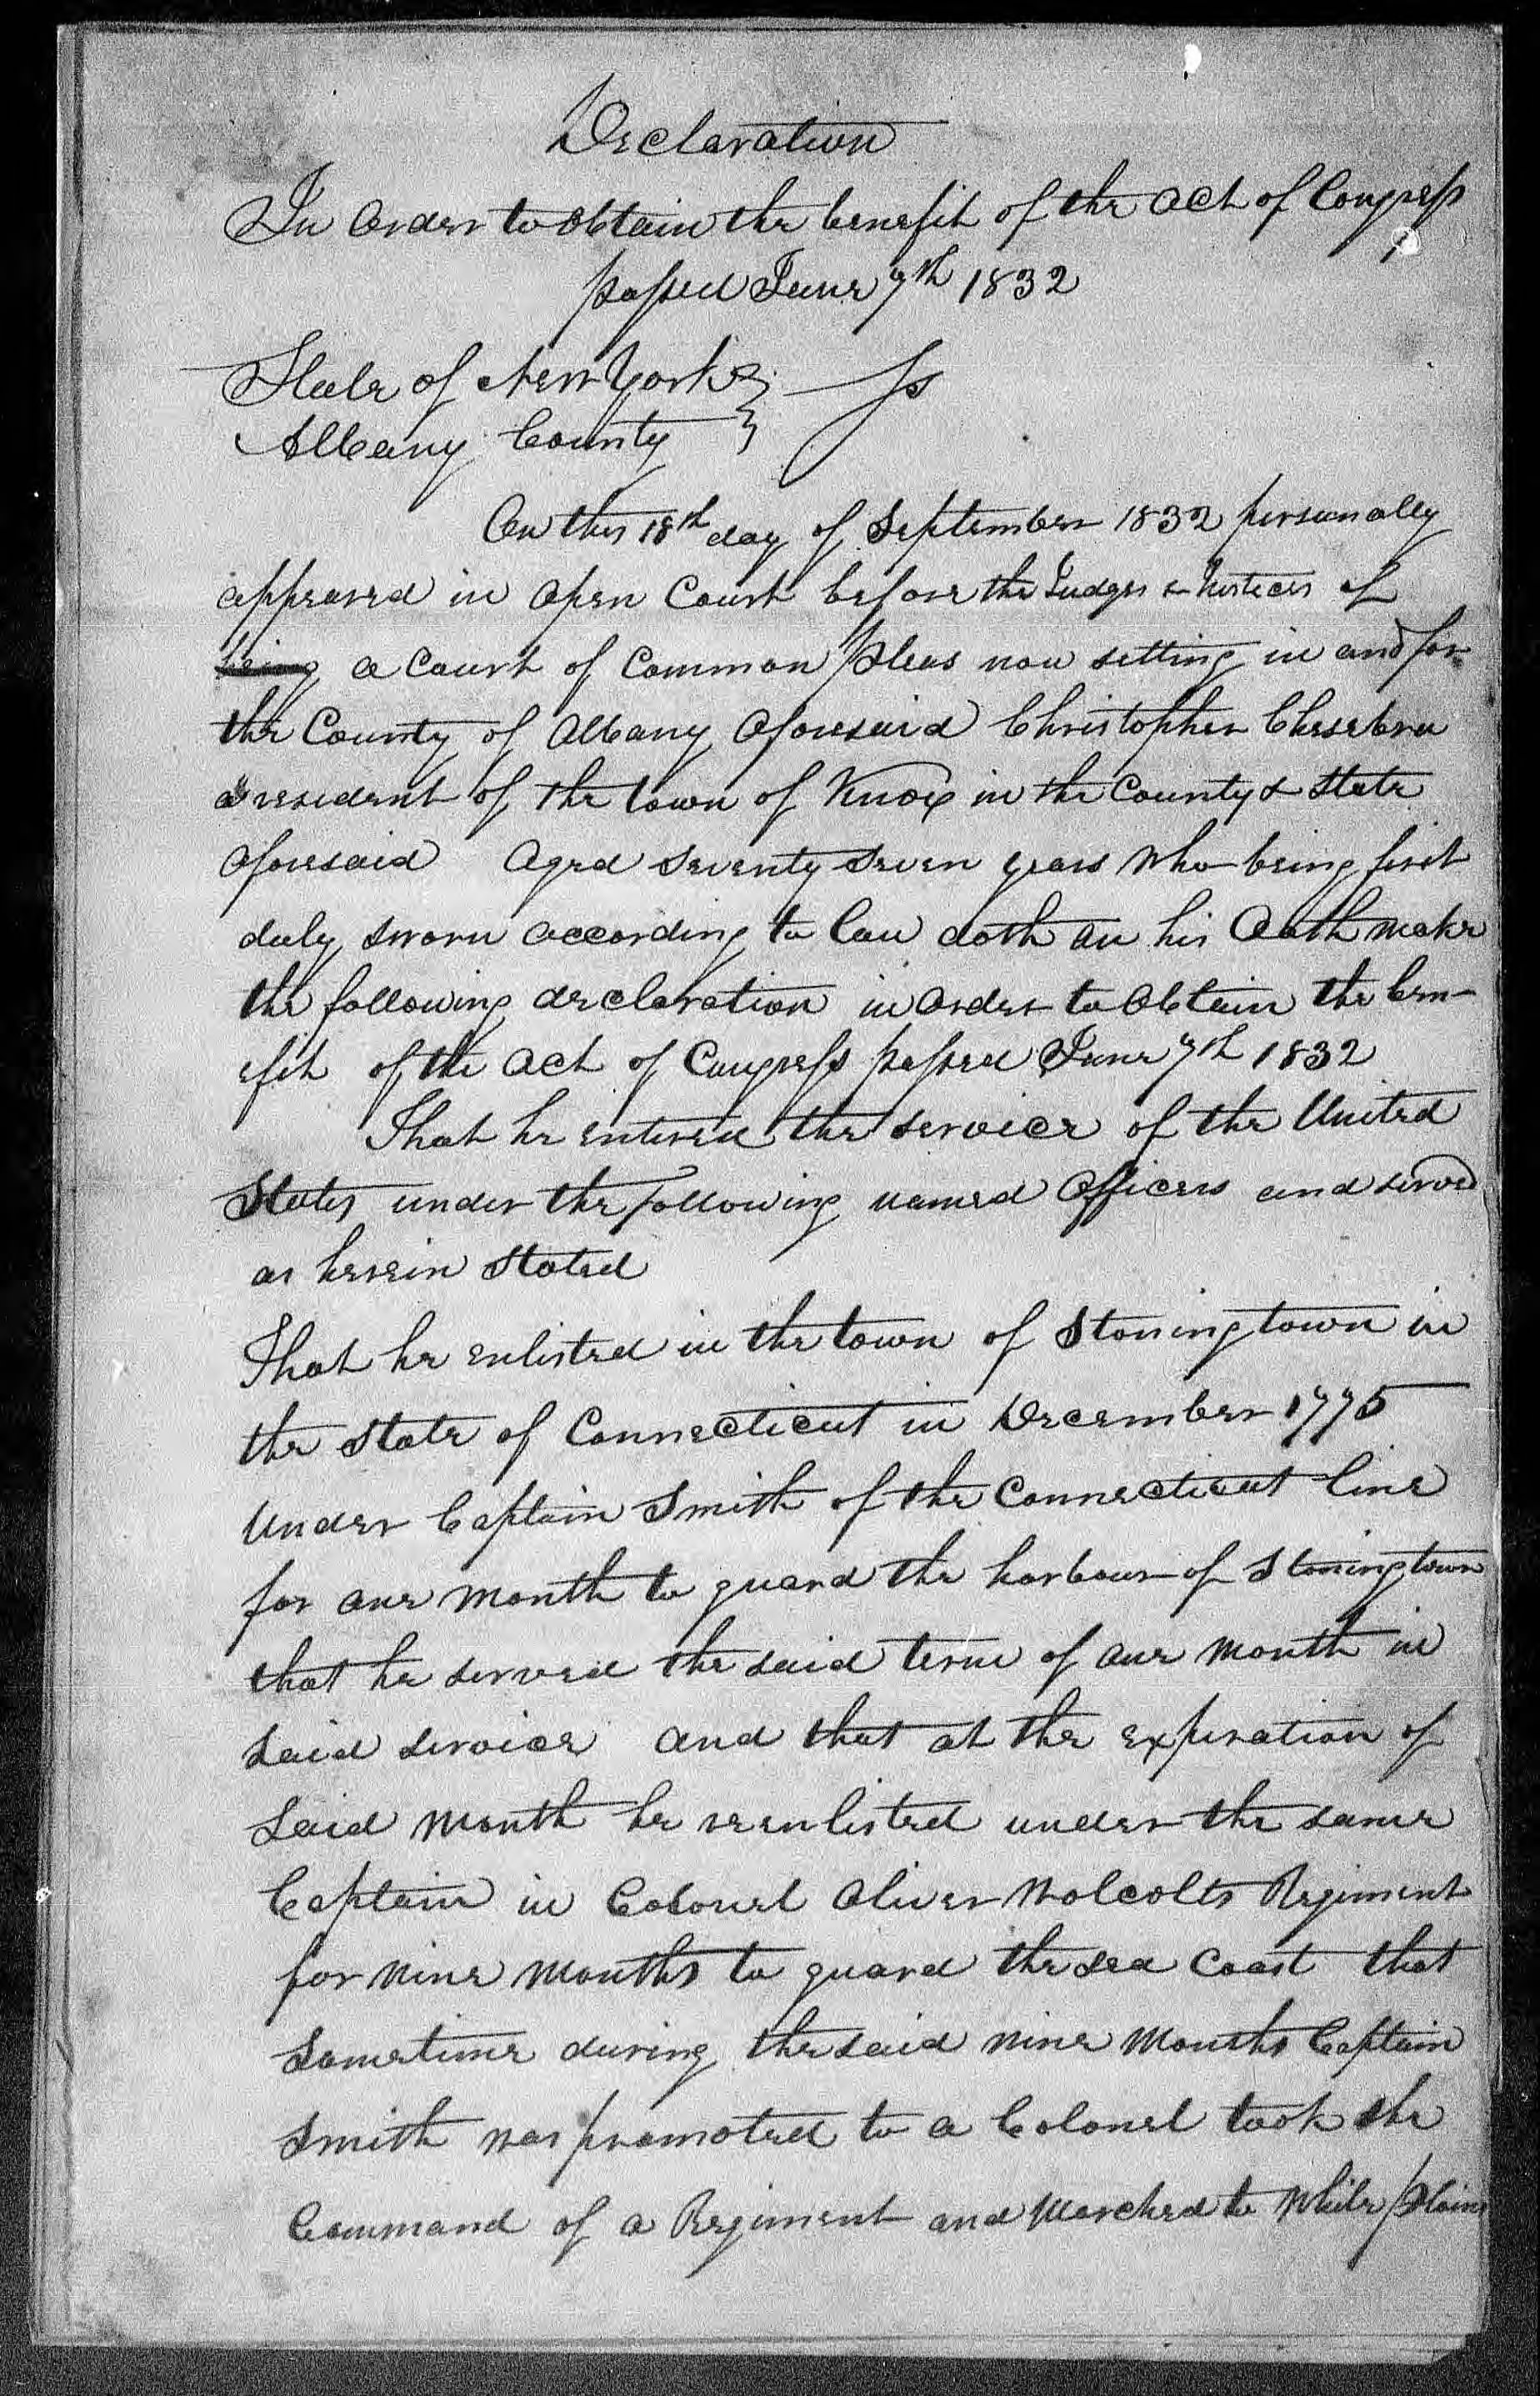 Declaration
In Order to Obtain the benefit of the Act of Congress
passed June 7th 1832
State of New York
Albany County } ss
On this 18th day of September 1832 personally
appeared in Open Court before the Judges & Justices of
being a Court of Common Pleas now setting in and for
the County of Albany Aforesaid Christopher Chesebru
a resident of the town of Knox in the County & State
Aforesaid Aged Seventy Seven years Who being first
duly sworn according to law doth on his Oath make
the following declaration in Order to Obtain the ben-
efit of the Act of Congress passed June 7th 1832
That he entered the service of the United
States under the following named Officers and served
as herein Stated
That he enlisted in the town of Stoningtown in
the State of Connecticut in December 1775
Under Captain Smith of the Connecticut line
for one Month to guard the harbour of Stoningtown
that he served the said term of one Month in
said service and that at the expiration of
said Month he reenlisted under the same
Captain in Colonel Oliver Wolcolts Regiment
for Nine Months to guard the sea Coast that
sometime during the said Nine Months Captain
Smith was promoted to a Colonel took the
Command of a Regiment and Marched to White Plains